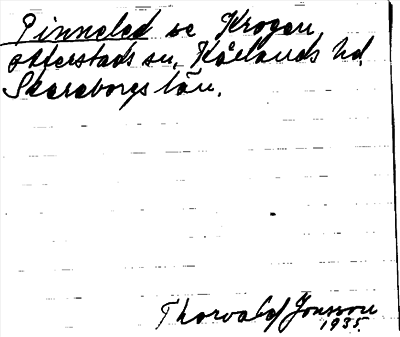 Pinneled se Krogen
Otterstads sn, Kållands hd,
Skaraborgs län.
Thorvald Jonsson
1935.